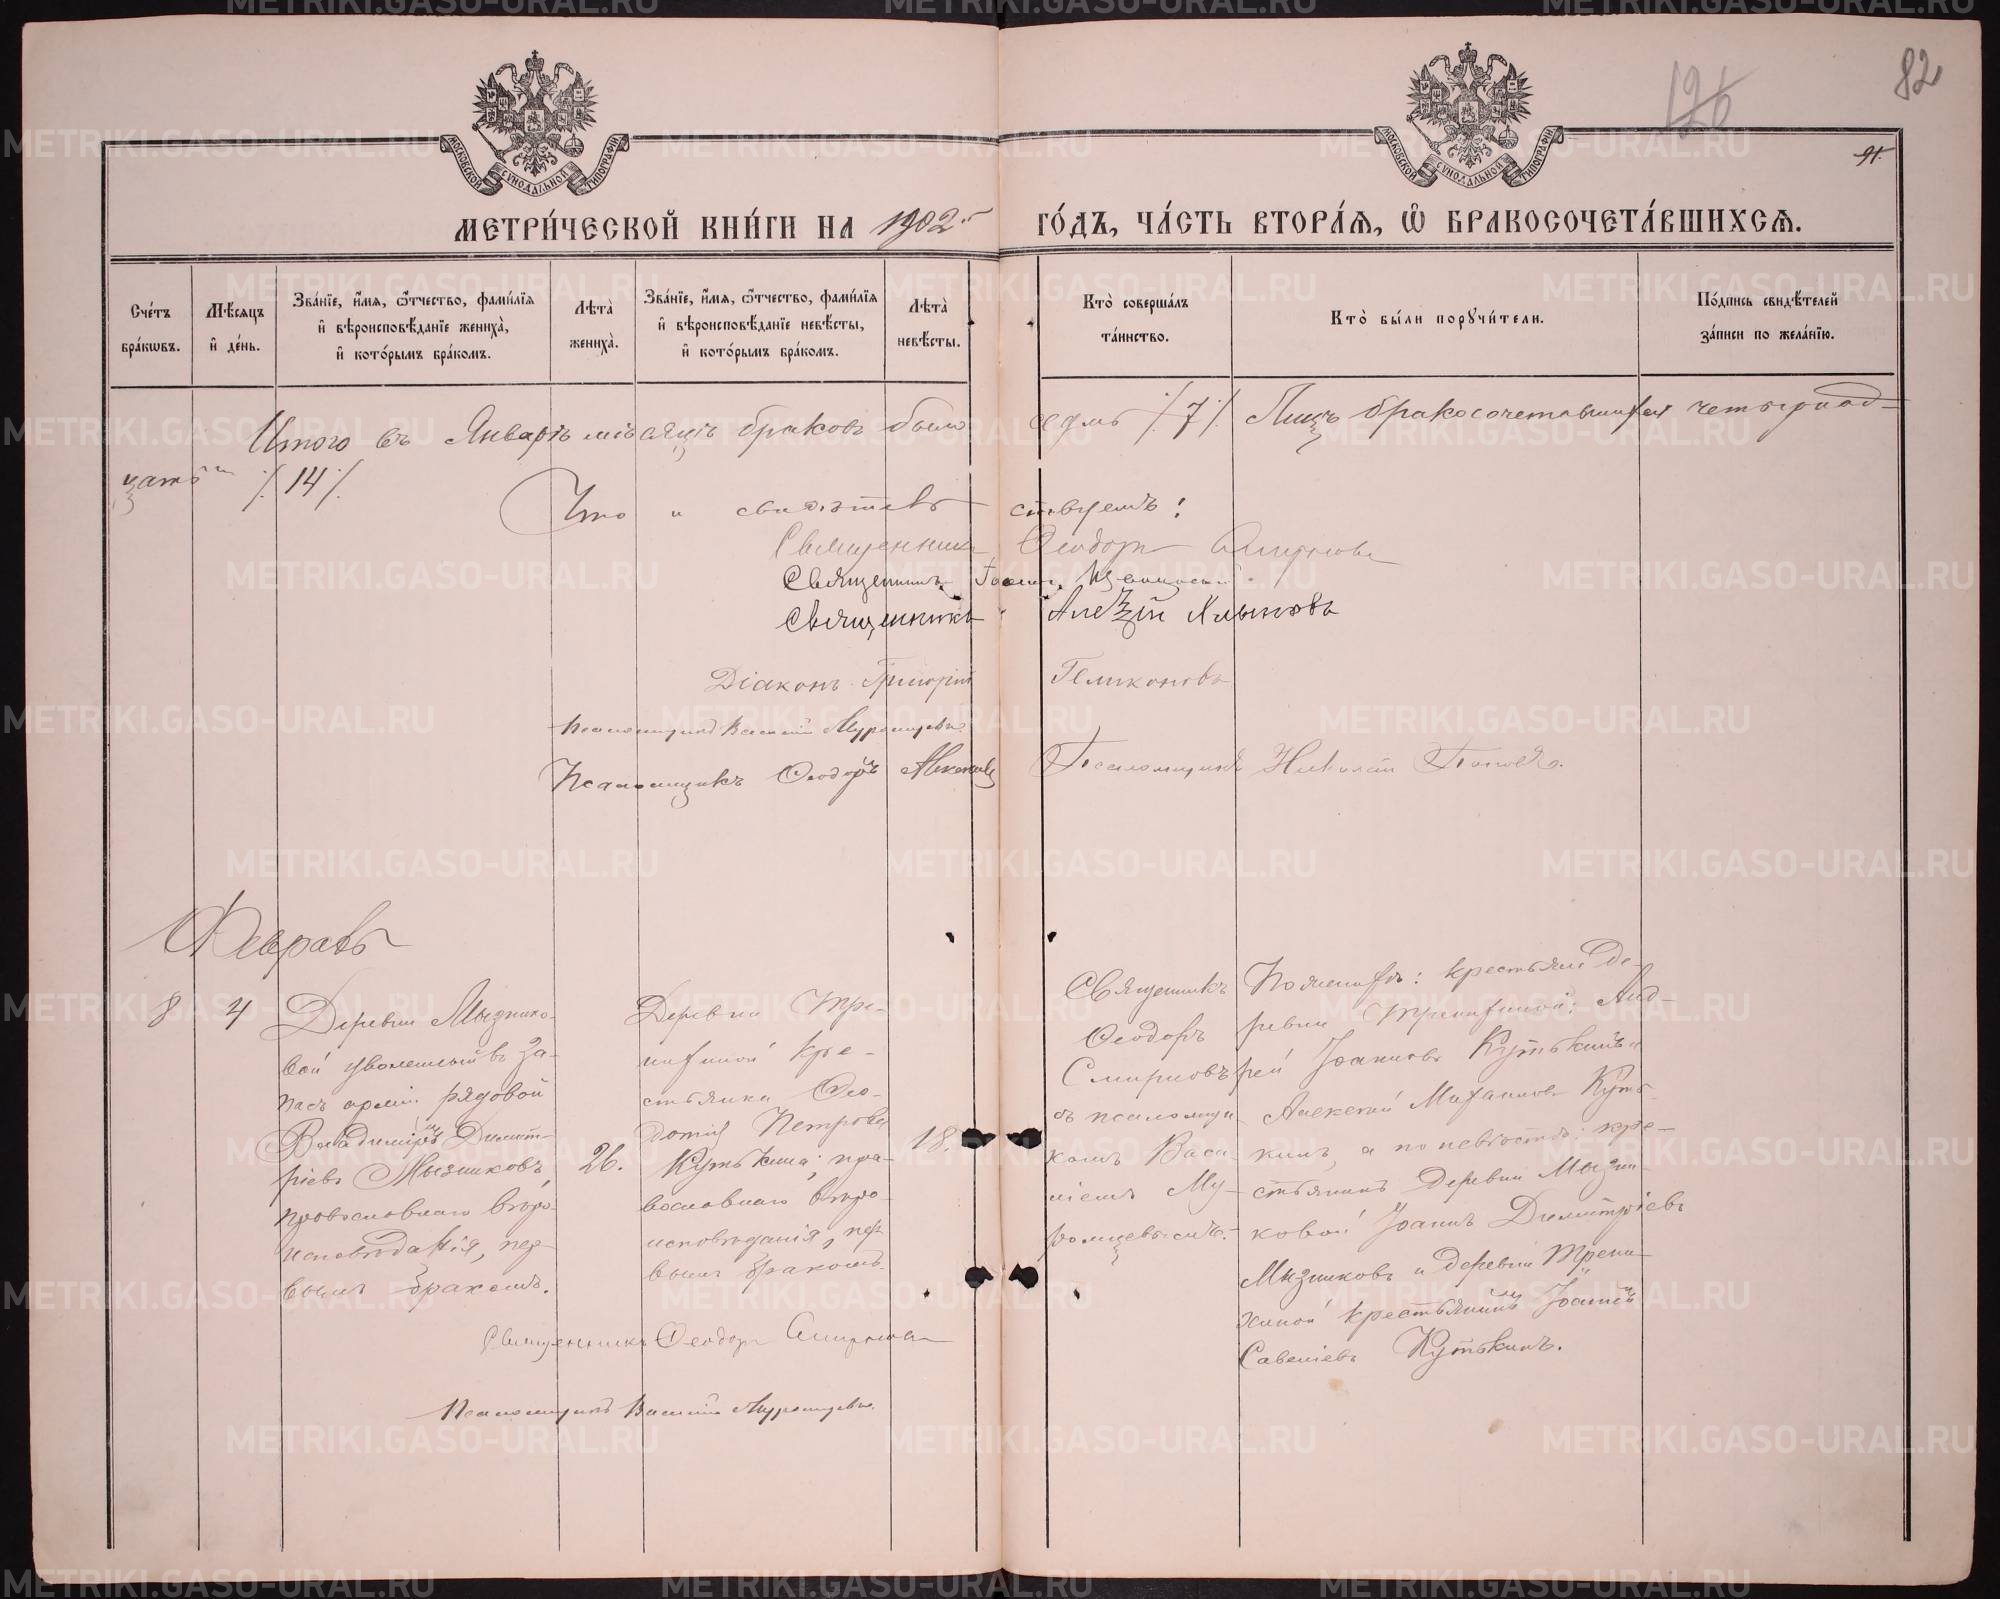 126
82
91.
МОСКОВСКОЙ СѴНОДАЛЬНОЙ ТИПОГРАФІИ
МОСКОВСКОЙ СѴНОДАЛЬНОЙ ТИПОГРАФІИ
МЕТРИ́ЧЕСКОЙ КНИ́ГИ НА 1902 й ГО́ДЪ, ЧА́СТЬ ВТОРА́Ѧ, Ѡ҆ БРАКОСОЧЕТА́ВШИХСѦ.
Сче́тъ бра́кѡвъ.
Мѣ́сѧцъ и҆ де́нь.
Зва́нїе, и҆́мѧ, ѻ҆́тчество, фами́лїѧ и҆ вѣроисповѣ́данїе жениха̀, и҆ кото́рымъ бра́комъ.
Лѣта̀ жениха̀.
Зва́нїе, и҆́мѧ, ѻ҆́тчество, фами́лїѧ и҆ вѣроисповѣ́данїе невѣ́сты, и҆ кото́рымъ бра́комъ.
Лѣта̀ невѣ́сты.
Кто̀ соверша́лъ та́инство.
Кто̀ бы́ли порꙋчи́тели.
По́дпись свидѣ́телей за́писи по жела́нїю.
Итого въ Январѣ мѣсяцѣ браковъ было седмь /7/ Лицъ бракосочетавшихся четырнад-
цать /14/.
Что и свидѣтельствуемъ:
Священникъ Ѳеодоръ Смирновъ
Священникъ Іоаннъ
Священникъ Алексій Хлыновъ
Діаконъ Григорій Геликоновъ
Псаломщикъ Василій Муромцевъ
Псаломщикъ Ѳеодоръ
Псаломщикъ Николай Поповъ.
Февраль
8
4
Деревни Мызнико-
вой уволенный въ за-
пасъ арміи рядовой
Владиміръ Димит-
ріевъ Мызниковъ,
православнаго вѣро-
исповѣданія, пер-
вымъ бракомъ.
26.
Деревни Тре-
нихиной кре-
стьянка Ѳео-
дотія Петрова
Кутькина, пра-
вославнаго вѣро-
исповѣданія, пер-
вымъ бракомъ.
18.
Священникъ
Ѳеодоръ
Смирновъ
съ псаломщи-
комъ Васи-
ліемъ Му-
ромцевымъ.
По женихѣ: крестьяне де-
ревни Тренихиной: Анд-
рей Іоанновъ Кутькинъ и
Алексій Михаиловъ Куть-
кинъ, а по невѣстѣ: кре-
стьянинъ деревни Мызни-
ковой Іоаннъ Димитріевъ
Мызниковъ и деревни Трени-
хиной крестьянинъ Іоаннъ
Савеліевъ Кутькинъ.
Священникъ Ѳеодоръ Смирновъ
Псаломщикъ Василій Муромцевъ.
METRIKI.GASO-URAL.RU